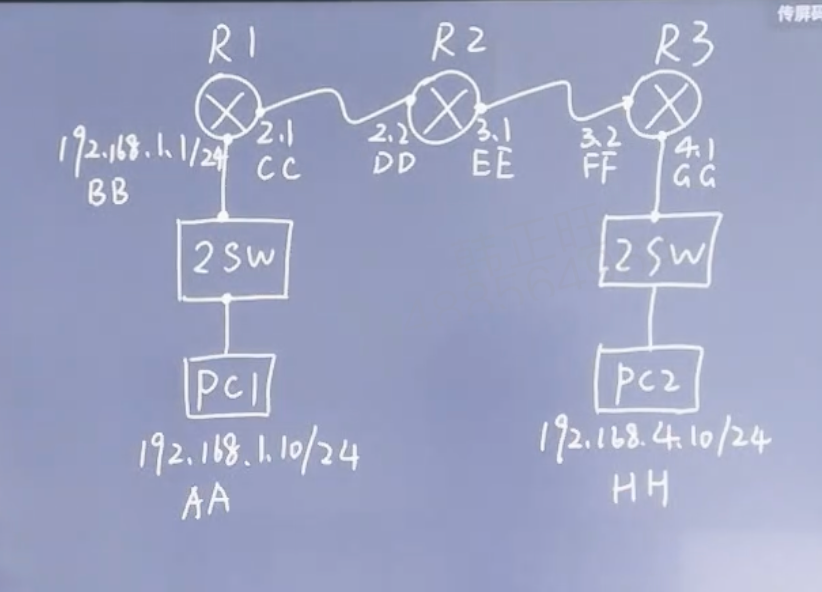 传屏码
R1
R2
R3
192.168.1.1/24
BB
2.1
CC
2.2
DD
3.1
EE
3.2
FF
4.1
GG
2SW
2SW
PC1
PC2
192.168.1.10/24
AA
192.168.4.10/24
HH